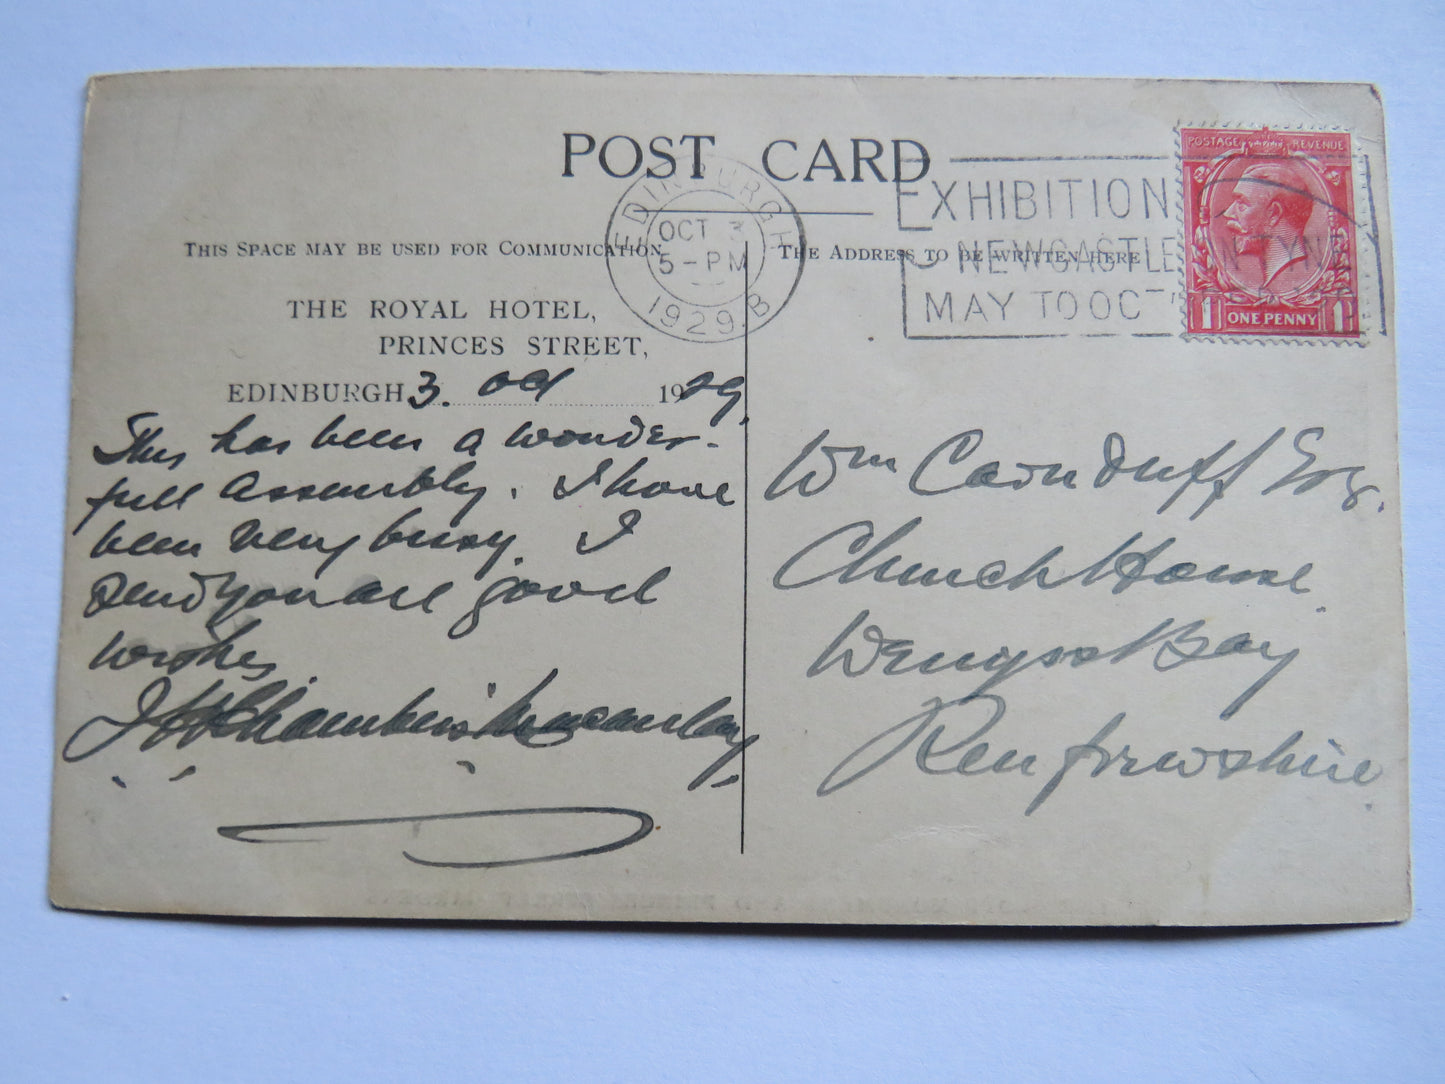 POST CARD
EDINBURGH
OCT 3
5 - PM
1929 B
EXHIBITION
NEWCASTLE ON TYNE
MAY TO OCT
POSTAGE REVENUE
1 ONE PENNY 1
THIS SPACE MAY BE USED FOR COMMUNICATION
THE ADDRESS TO BE WRITTEN HERE
THE ROYAL HOTEL,
PRINCES STREET,
EDINBURGH 3. Oct 1929.
This has been a wonder-
full assembly. I have
been very busy. I
send you all good
wishes
J H Chambers Macaulay
Wm Cairnduff Esq.
Church House.
Wemyss Bay
Renfrewshire